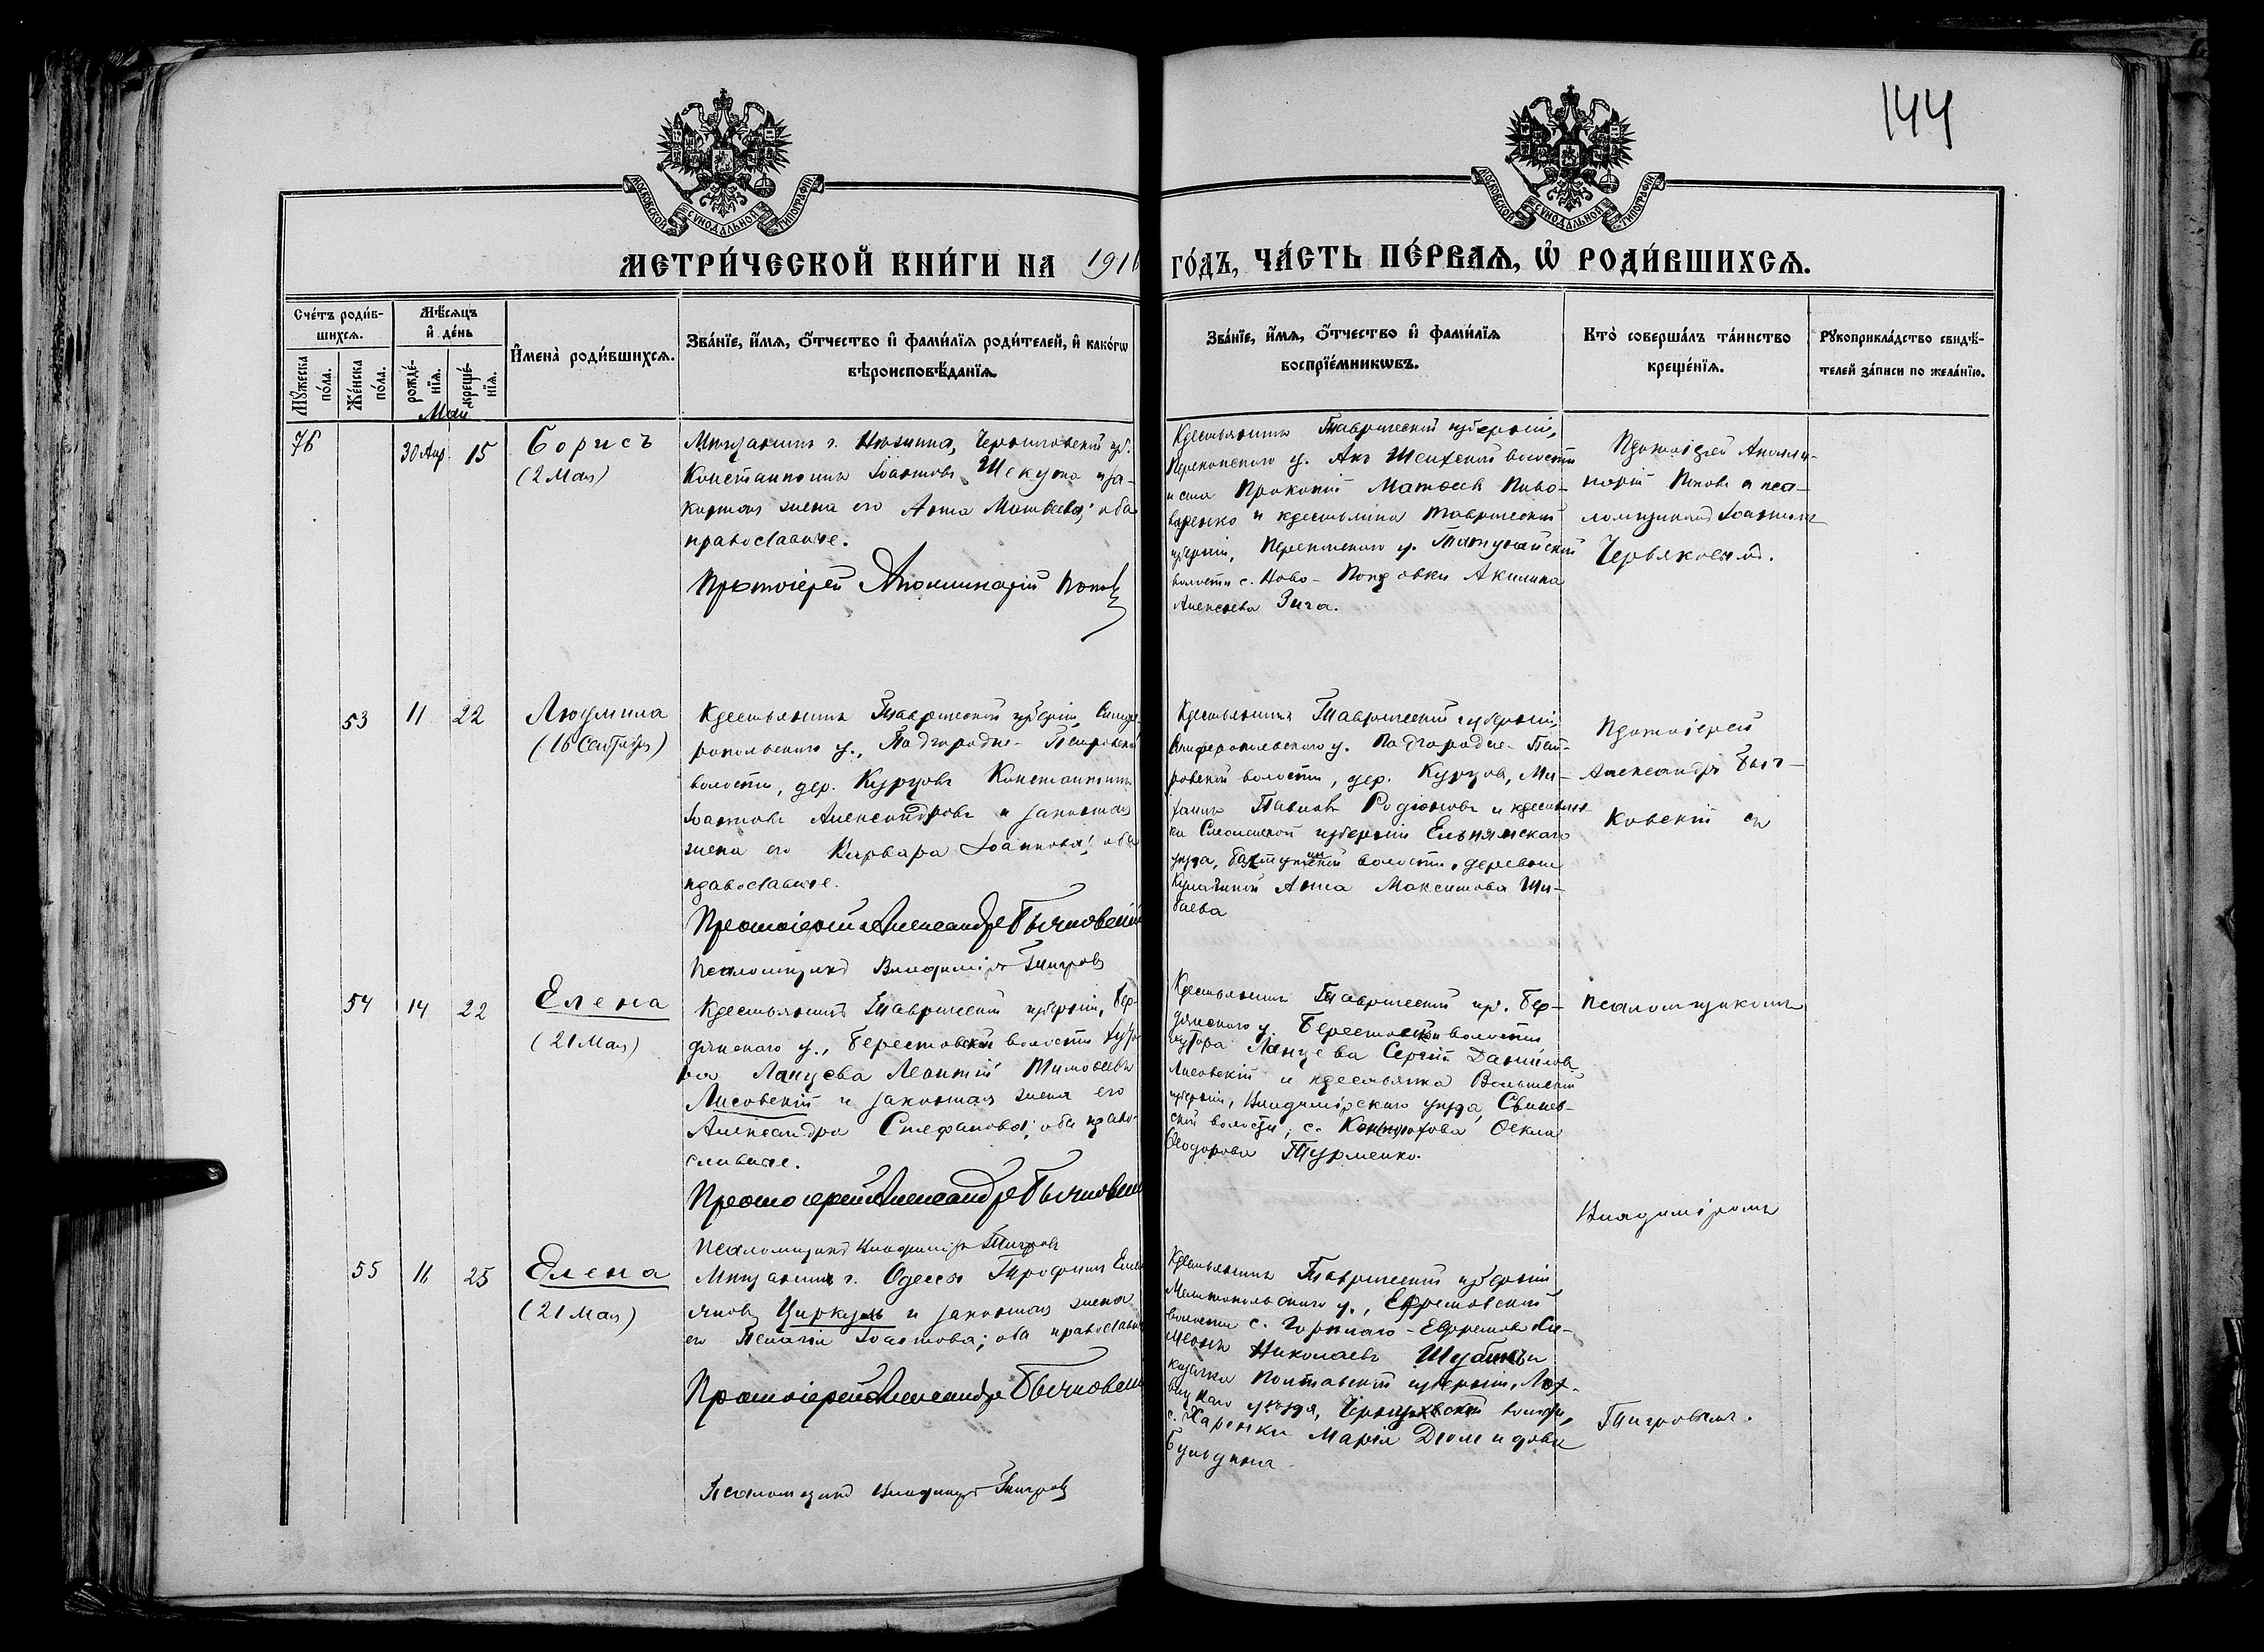 144
МОСКОВСКОЙ СѴНОДАЛЬНОЙ ТИПОГРАФІИ
МОСКОВСКОЙ СѴНОДАЛЬНОЙ ТИПОГРАФІИ
МЕТРИ́ЧЕСКОЙ КНИ́ГИ НА 1916
ГО́ДЪ, ЧА́СТЬ ПЕ́РВАЯ, Ѡ҆ РОДИ́ВШИХСЯ.
Сче́тъ роди́в-
шихся.
Мꙋ́жеска по́ла.
Же́нска по́ла.
Мѣ́сяцъ
и҆ де́нь
рожде́-
нїя.
креще́-
нїя.
И҆мена̀ роди́вшихся.
Зва́нїе, и҆́мя, ѻ҆́тчество и҆ фами́лїя роди́телей, и҆ како́гѡ
вѣроисповѣ́данїя.
Зва́нїе, и҆́мя, ѻ҆́тчество и҆ фами́лїя
воспрїе́мникѡвъ.
Кто̀ соверша́лъ та́инство
креще́нїя.
Рꙋкоприкла́дство свидѣ́-
телей за́писи по жела́нїю.
Май
76
30 Апр.
15
Борисъ
(2 Мая)
Мѣщанинъ г. Нѣжина, Черниговской губ.
Константинъ Іоанновъ Шекула и за-
конная жена его Анна Матвеева; оба
православные.
Протоіерей Аполлинарій Поповъ
Крестьянинъ Таврической губерніи,
Перекопскаго у. Акъ Шеихской волости
и села Прокопій Матвеевъ Пиво-
варенко и крестьянка Таврической
губерніи, Перекопскаго у.
волости с. Ново-Поповки Акилина
Алексеева Зига.
Протоіерей Аполли-
нарій Поповъ и пса-
ломщикомъ Іоанномъ
Червяковымъ.
53
11
22
Людмила
(16 Сентября)
Крестьянинъ Таврической губерніи, Симфе-
ропольскаго у., Подгородне-Петровской
волости, дер. Курцовъ Константинъ
Іоанновъ Александровъ и законная
жена его Варвара Іоаннова; оба
православные.
Протоіерей Александръ Бычковскій
Псаломщикъ Владиміръ Тигровъ
Крестьянинъ Таврической губерніи,
Симферопольскаго у. Подгородне-Пет-
ровской волости, дер. Курцовъ, Ми-
хаилъ Павловъ Родіоновъ и крестьян-
ка Смоленской губерніи Ельнинскаго
уѣзда, волости, деревни
Анна Максимова Ши-
баева
Протоіерей
Александръ Быч-
ковскій съ
54
14
22
Елена
(21 Мая)
Крестьянинъ Таврической губерніи, Бер-
дянскаго у., Берестовской волости хуто-
ра Ланцева Леонтій Тимофеевъ
Лисовскій и законная жена его
Александра Стефанова; оба право-
славные.
Протоіерей Александръ Бычковскій
Псаломщикъ Владиміръ Тигровъ
Крестьянинъ Таврической губ. Бер-
дянскаго у. Берестовской волости
хутора Ланцева Сергій Даниловъ
Лисовскій и крестьянка Волынской
губерніи, Владимірскаго уѣзда, Свинев-
ской волости, с. Ѳекла
Ѳеодорова Турменко.
псаломщикомъ
Владиміромъ
55
16
25
Елена
(21 Мая)
Мѣщанинъ г. Одессы Трофимъ Емел-
яновъ Циркуль и законная жена
его Пелагія Іоаннова; оба православн
Протоіерей Александръ Бычковскій
Псаломщикъ Владиміръ Тигровъ
Крестьянинъ Таврической губерніи
Мелитопольскаго у., Ефремовской
волости с. Горѣлаго-Ефремовки Си-
меонъ Николаевъ Шубинъ и
казачка Полтавской губерніи, Лох-
вицкаго уѣзда, Чернухской волости,
с. Харенки Марія Діомидова
Бульдина.
Тигровымъ.